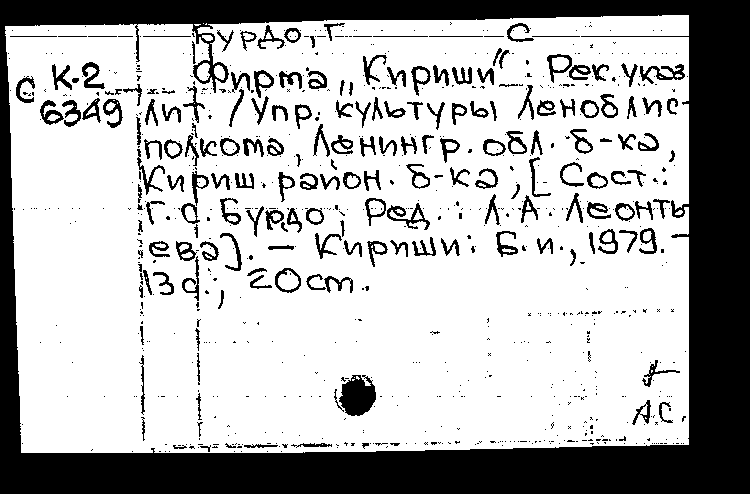 Бурдо, Г С
С К-2 6349
Фирма „Кириши“: Рек. указ
лит. / Упр. культуры Леноблис-
полкома, Ленингр. обл. б-ка,
Кириш. район. б-ка; [Сост.:
Г. С. Бурдо; Ред.: Л. А. Леонть
ева]. — Кириши: Б. и., 1979. —
13 с.; 20 ст.
А.С.